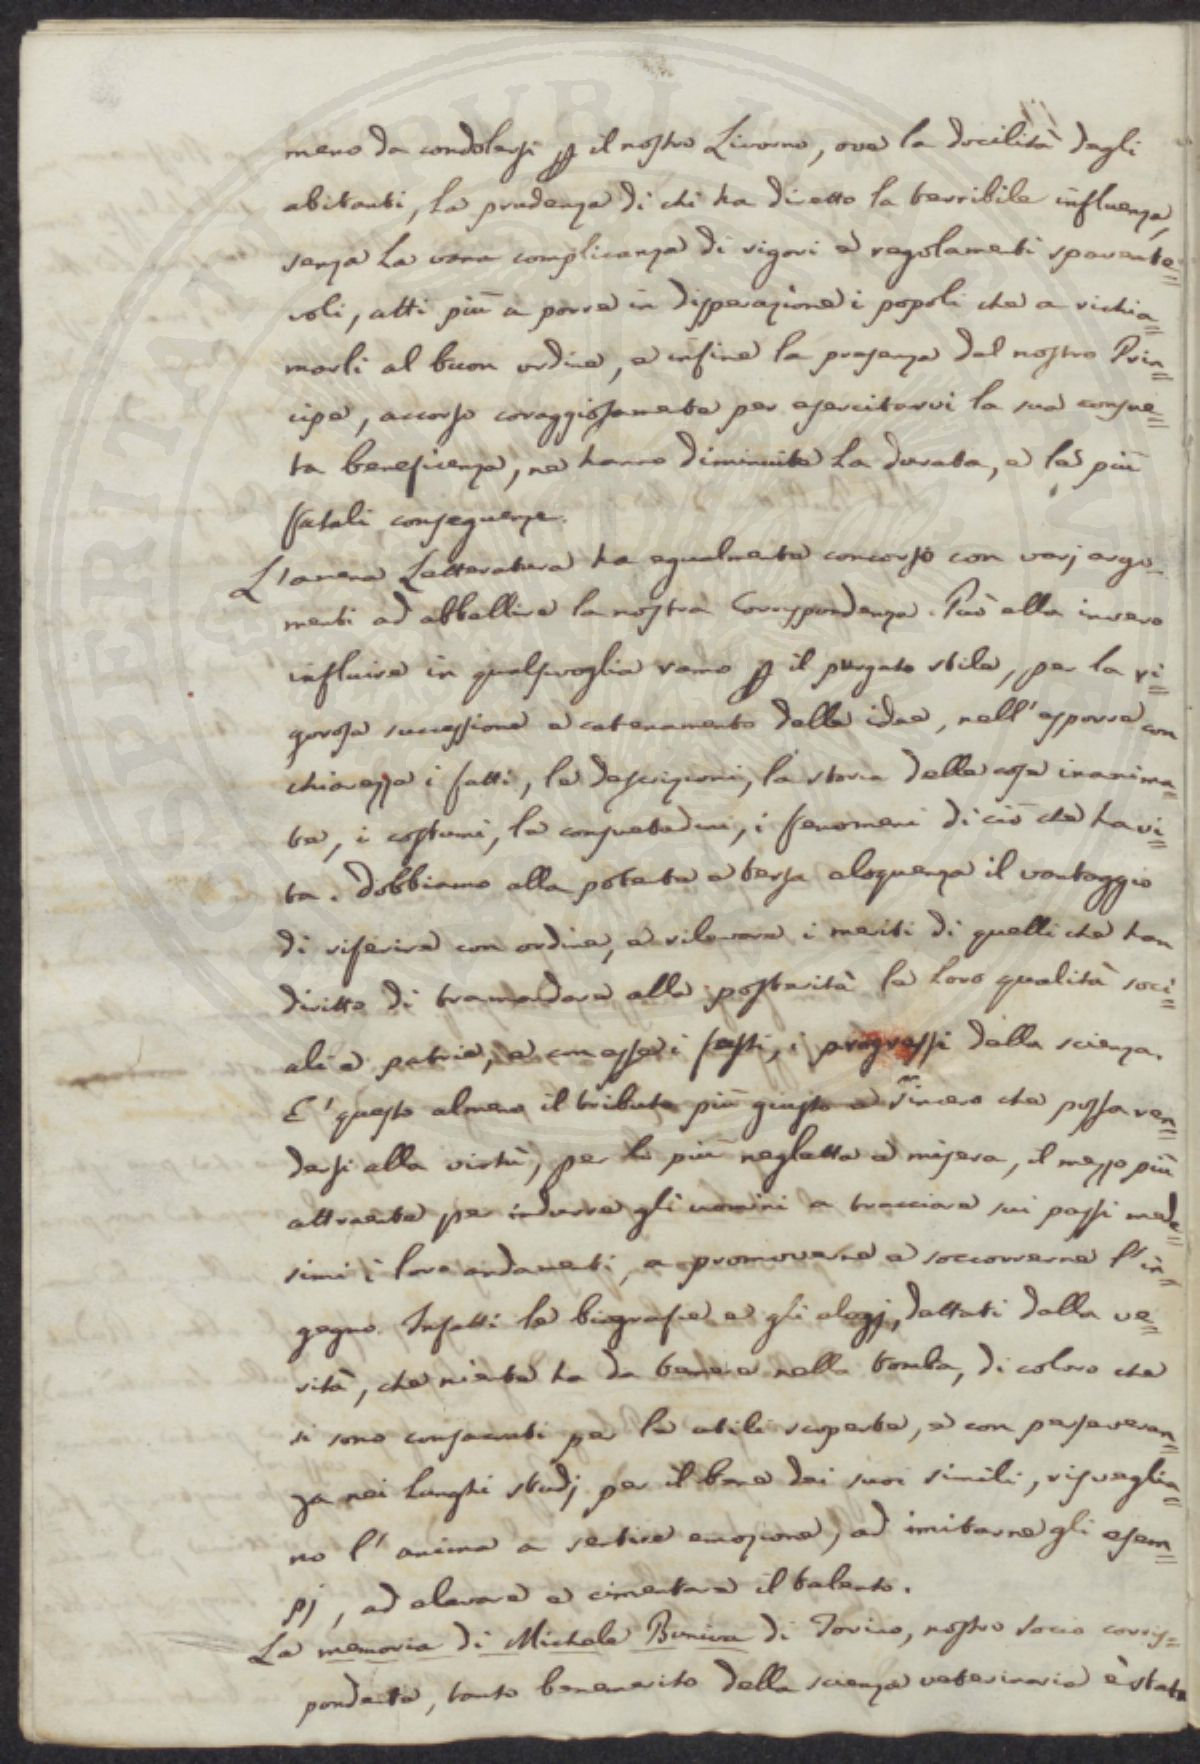 meno da condolersi per il nostro Livorno, ove la docilità degli
abitanti, la prudenza di chi ha diretto la terribile influenza,
senza la vana complicanza di rigori e regolamenti spavente=
voli, atti più a porre in disperazione i popoli che a richia=
marli al buon ordine, e infine la presenza del nostro Prin=
cipe, accorso coraggiosamente per esercitarvi la sua consue=
ta beneficenza, ne hanno diminuita la durata, e le più
fatali conseguenze.
L'amena Letteratura ha egualmente concorso con varj argo-
menti ad abbellire la nostra Corrispondenza. Può ella invero
influire in qualsivoglia ramo per il purgato stile, per la ri=
gorosa successione e catenamento delle idee, nell'esporre con
chiarezza i fatti, le descrizioni, la storia delle cose inanima=
te, i costumi, le consuetudini, i fenomeni di ciò che ha vi=
ta. Dobbiamo alla potente e tersa eloquenza il vantaggio
di riferire con ordine, e rilevare i meriti di quelli che han
diritto di tramandare alla posterità le loro qualità soci=
ali e patrie, e con esse i fasti, i progressi della scienza.
E' questo almeno il tributo più giusto e sincero che possa ren=
dersi alla virtù, per lo più negletta e misera, il mezzo più
attraente per indurre gli uomini a tracciare sui passi mede=
simi i loro andamenti, a promuoverne e soccorrerne l'in=
gegno. Infatti le biografie e gli elogj, dettati dalla ve=
rità, che niente ha da temere nella tomba, di coloro che
si sono consacrati per le utili scoperte, e con perseveran=
za nei lunghi studj per il bene dei suoi simili, risveglia=
no l'anima a sentire emozione, ad imitarne gli esem=
pj, ad elevare e cimentare il talento.
La memoria di Michele Buniva di Torino, nostro socio corris=
pondente, tanto benemerito della scienza veterinaria è stata